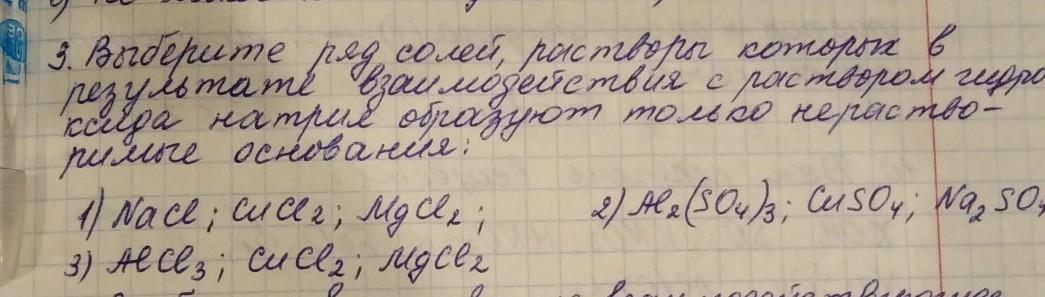 3. Выберите ряд солей, растворы которых в
результате взаимодействия с раствором гидро
ксида натрия образуют только нераство-
римые основания:
1) NaCl; CuCl2; MgCl2; 2) Al2(SO4)3; CuSO4; Na2SO4
3) AlCl3; CuCl2; MgCl2